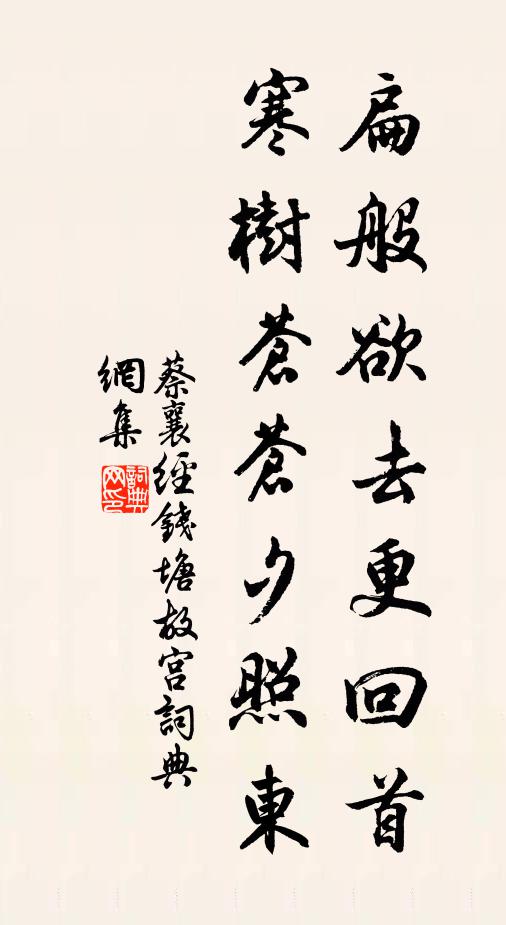 扁般欲去更回首
寒樹蒼蒼夕照東
蔡襄經錢塘故宮詞典
網集
詞典網印